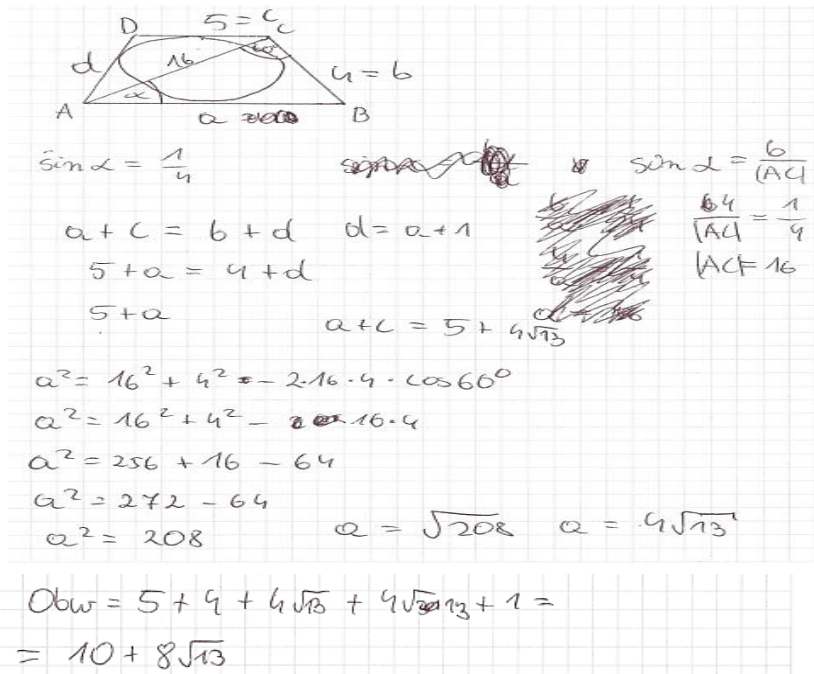 D 5 = c C
d 16 60° 4 = b
A α a B
sin α = 1/4 sin α = b/|AC|
a + c = b + d d = a + 1 64/|AC| = 1/4
5 + a = 4 + d |AC| = 16
5 + a
a + c = 5 + 4√13
a² = 16² + 4² - 2·16·4·cos60°
a² = 16² + 4² - 16·4
a² = 256 + 16 - 64
a² = 272 - 64
a² = 208 a = √208 a = 4√13
Obw = 5 + 4 + 4√13 + 4√13 + 1 =
= 10 + 8√13